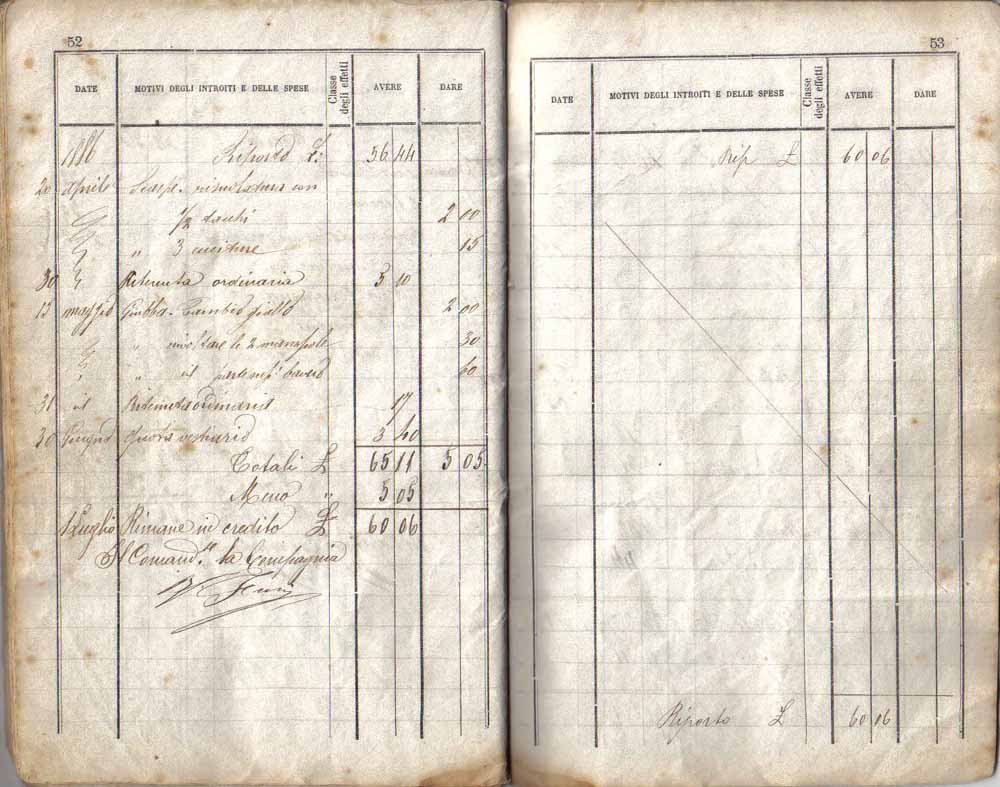 52
DATE MOTIVI DEGLI INTROITI E DELLE SPESE Classe degli effetti AVERE DARE
1886 Riporto £: 56 44
20 Aprile Scarpe. risuolatura con
1/2 tacchi 2 00
„ 3 cuciture 15
30 Ritenuta ordinaria 5 10
13 maggio Giubba. Cambio 2 00
„ rivoltare le 2 30
„ il bavero 60
31 id Ritenuta ordinaria 17
30 Giugno quota vestiario 3 40
Totali £ 65 11 5 05
Meno „ 5 05
1 Luglio Rimane in credito £ 60 06
Il Comand.te la Compagnia
53
DATE MOTIVI DEGLI INTROITI E DELLE SPESE Classe degli effetti AVERE DARE
Rip £ 60 06
Riporto £ 60 06